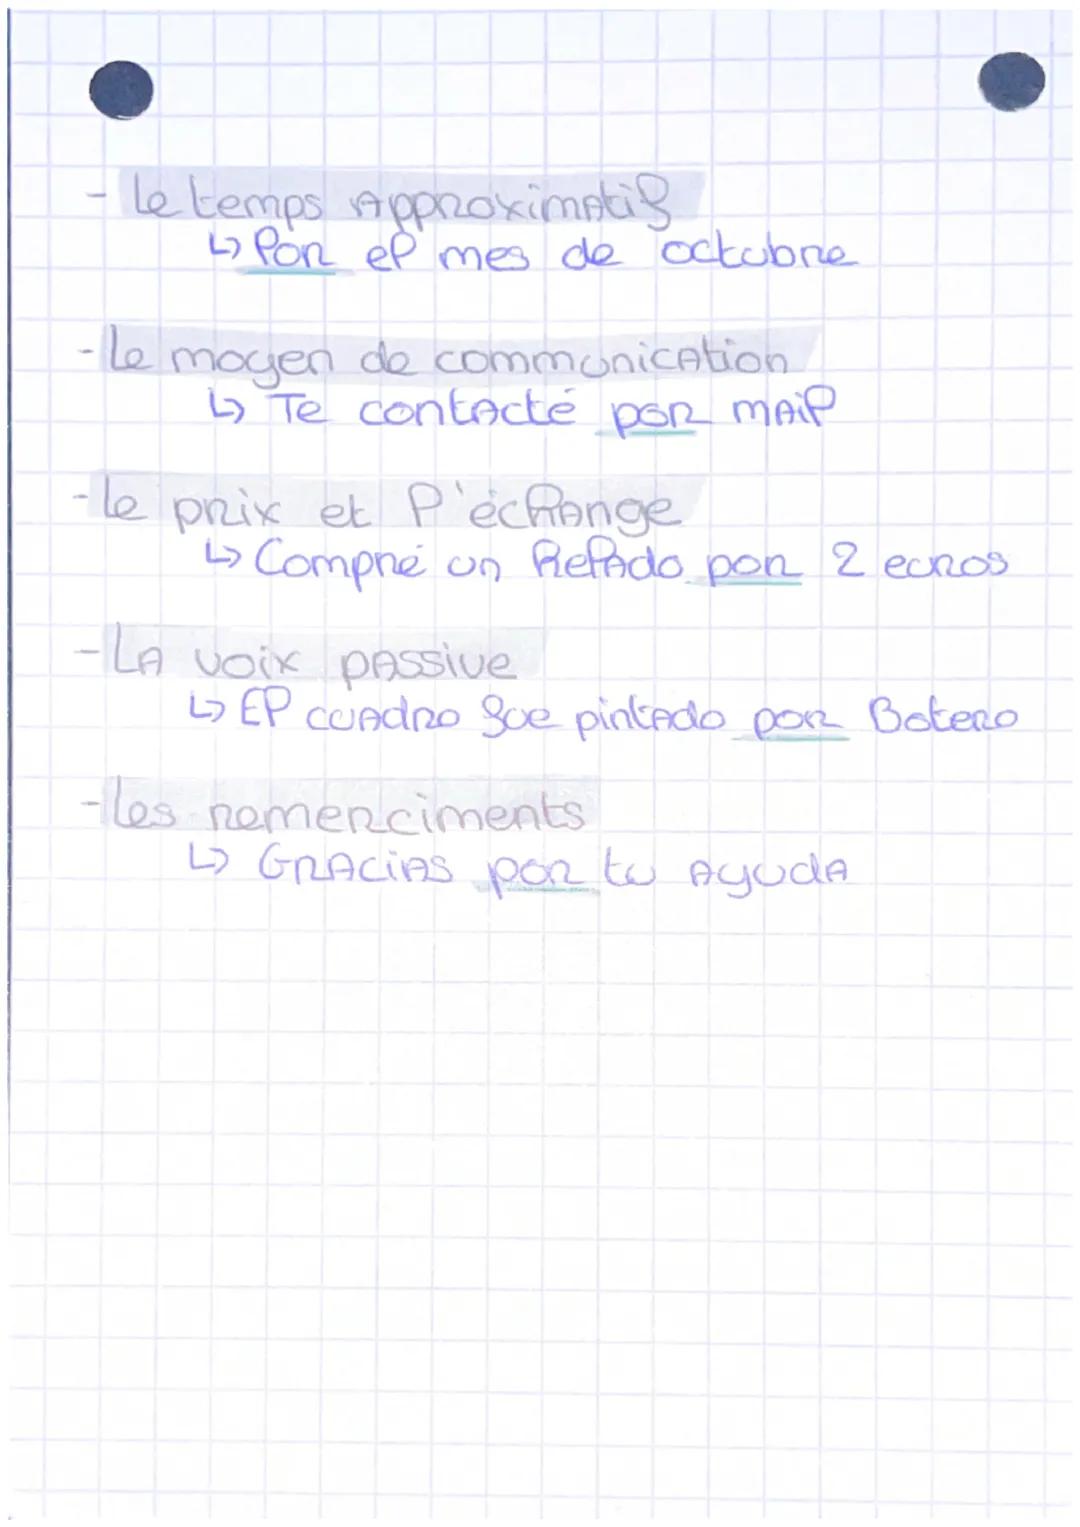 - Le temps Approximatif
↳ Por el mes de octubre
- Le moyen de communication
↳ Te contacté por mail
- Le prix et l'échange
↳ Compré un Relado por 2 euros
- LA voix passive
↳ El cuadro fue pintado por Botero
- Les remerciments
↳ Gracias por tu Ayuda